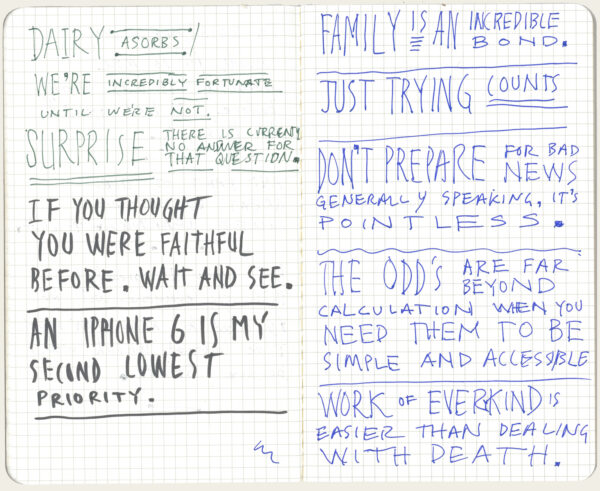 DAIRY ASORBS /
WE'RE INCREDIBLY FORTUNATE
UNTIL WE'RE NOT.
SURPRISE THERE IS CURRENTLY
NO ANSWER FOR
THAT QUESTION.
IF YOU THOUGHT
YOU WERE FAITHFUL
BEFORE. WAIT AND SEE.
AN IPHONE 6 IS MY
SECOND LOWEST
PRIORITY.
FAMILY IS AN INCREDIBLE
BOND.
JUST TRYING COUNTS
DON'T PREPARE FOR BAD
NEWS
GENERALLY SPEAKING, IT'S
POINTLESS.
THE ODD'S ARE FAR
BEYOND
CALCULATION WHEN YOU
NEED THEM TO BE
SIMPLE AND ACCESSIBLE
WORK OF EVERKIND IS
EASIER THAN DEALING
WITH DEATH.